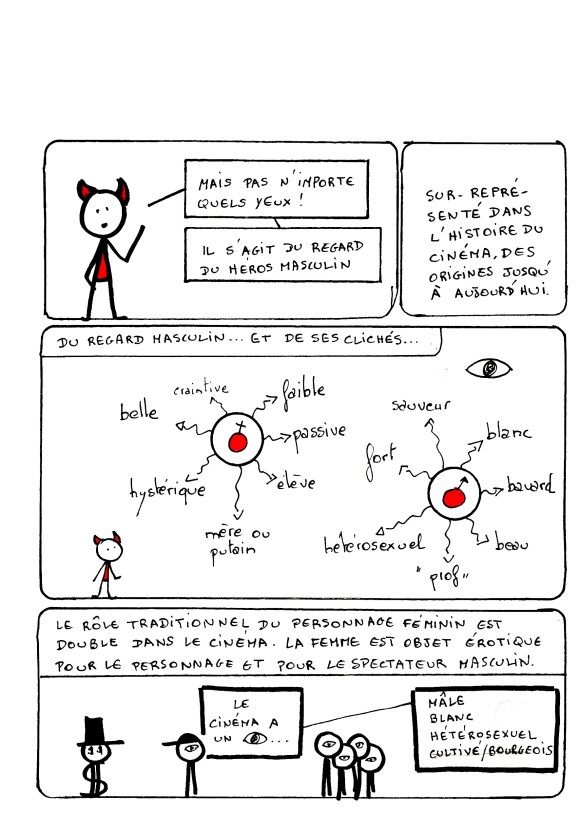 MAIS PAS N'IMPORTE
QUELS YEUX !
IL S'AGIT DU REGARD
DU HÉROS MASCULIN
SUR-REPRÉ-
SENTÉ DANS
L'HISTOIRE DU
CINÉMA, DES
ORIGINES JUSQU'
À AUJOURD'HUI.
DU REGARD MASCULIN... ET DE SES CLICHÉS...
craintive
faible
belle
passive
hystérique
élève
mère ou
putain
sauveur
blanc
fort
bavard
hétérosexuel
beau
"prof"
LE RÔLE TRADITIONNEL DU PERSONNAGE FÉMININ EST
DOUBLE DANS LE CINÉMA. LA FEMME EST OBJET ÉROTIQUE
POUR LE PERSONNAGE ET POUR LE SPECTATEUR MASCULIN.
LE
CINÉMA A
UN ...
MÂLE
BLANC
HÉTÉROSEXUEL
CULTIVÉ/BOURGEOIS